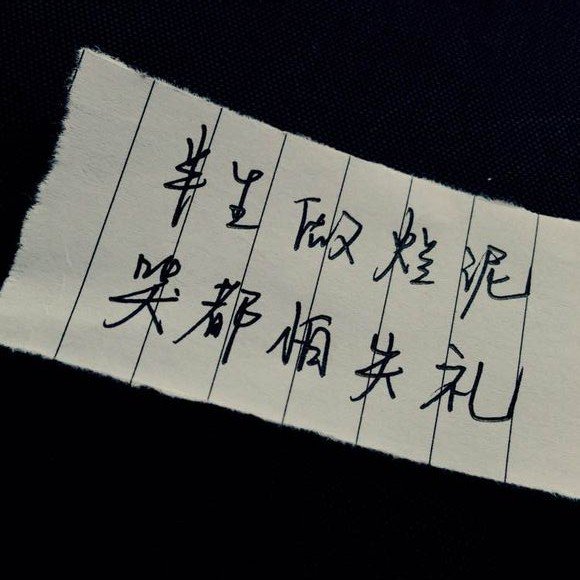 半生做烂泥
哭都怕失礼